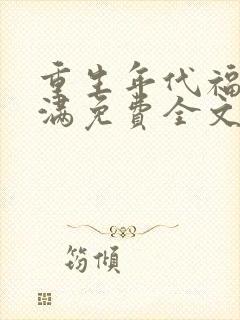 重生年代福
满免费全文
筠倾